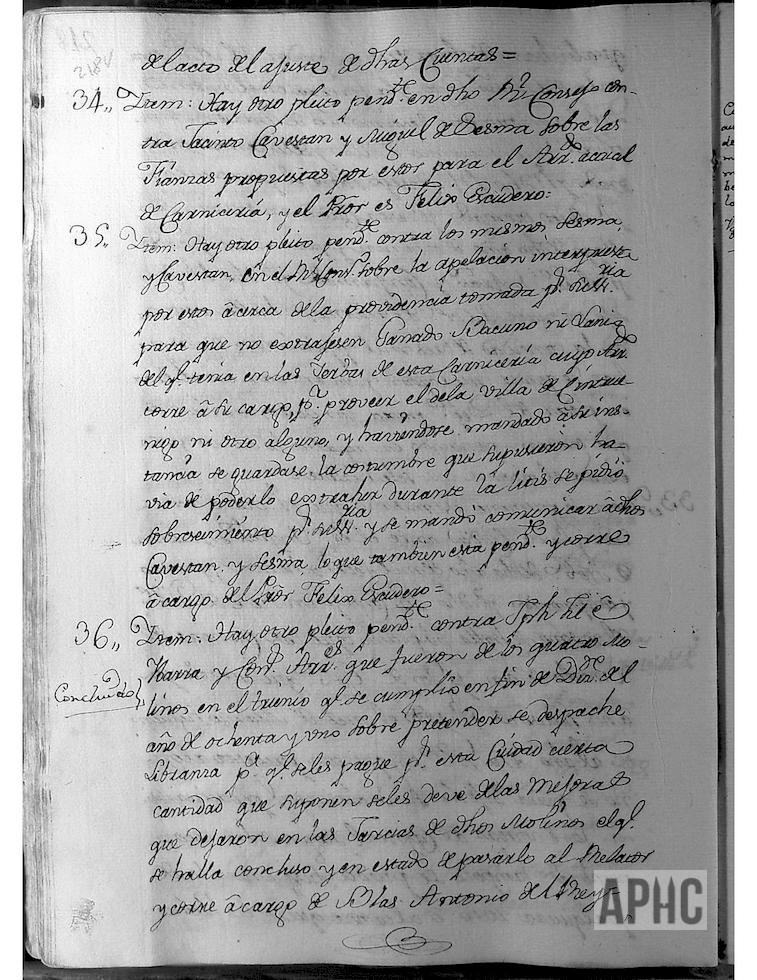 218v
del acto del ajuste de dhas Cuentas=
34,, Ytem: Hay otro pleito pend.te en dho Rl Consejo con-
tra Jacinto Cavestan y Miguel de Lesma sobre las
Fianzas propuestas por estos para el Arr.do actual
de Carniceria, y el Pror es Felix Escudero:
35,, Ytem: Hay otro pleito pend.te contra los mismos Lesma,
y Cavestan, en el Rl Cons. sobre la apelacion interpuesta
por estos âcerca de la providencia tomada p.r su Ss.ria
para que no extrajesen Ganado Bacuno ni Lanio
del q.e tenia en las Yerbas de esta Carniceria cuyo Arr.do
corre â su cargo, p.a proveer el de la villa de Cintru-
nigo ni otro alguno, y haviendose mandado â su ins-
tancia se guardase la costumbre que supusieron ha-
via de poderlo extraher durante la litis se pidiò
sobreseimiento p.r su Ss.ria y se mandò comunicar â dhos
Cavestan y Lesma lo que tambien està pend.te y corre
â cargo del Pror Felix Escudero=
36,, Ytem: Hay otro pleito pend.te contra Jph
Ybarra y Con.s Arr.es que fueron de los quatro Mo-
Concluido} linos en el trienio q.e se cumpliò en fin de Diz.re del
año de ochenta y uno sobre pretender se despache
Libranza p.a q.e se les pague p.r esta Ciudad cierta
cantidad que suponen se les deve de las Mejoras
que dejaron en las Tarcias de dhos Molinos el q.e
se halla concluso y en estado de pasarlo al Relator
y corre â cargo de Blas Antonio del Rey=
APHC